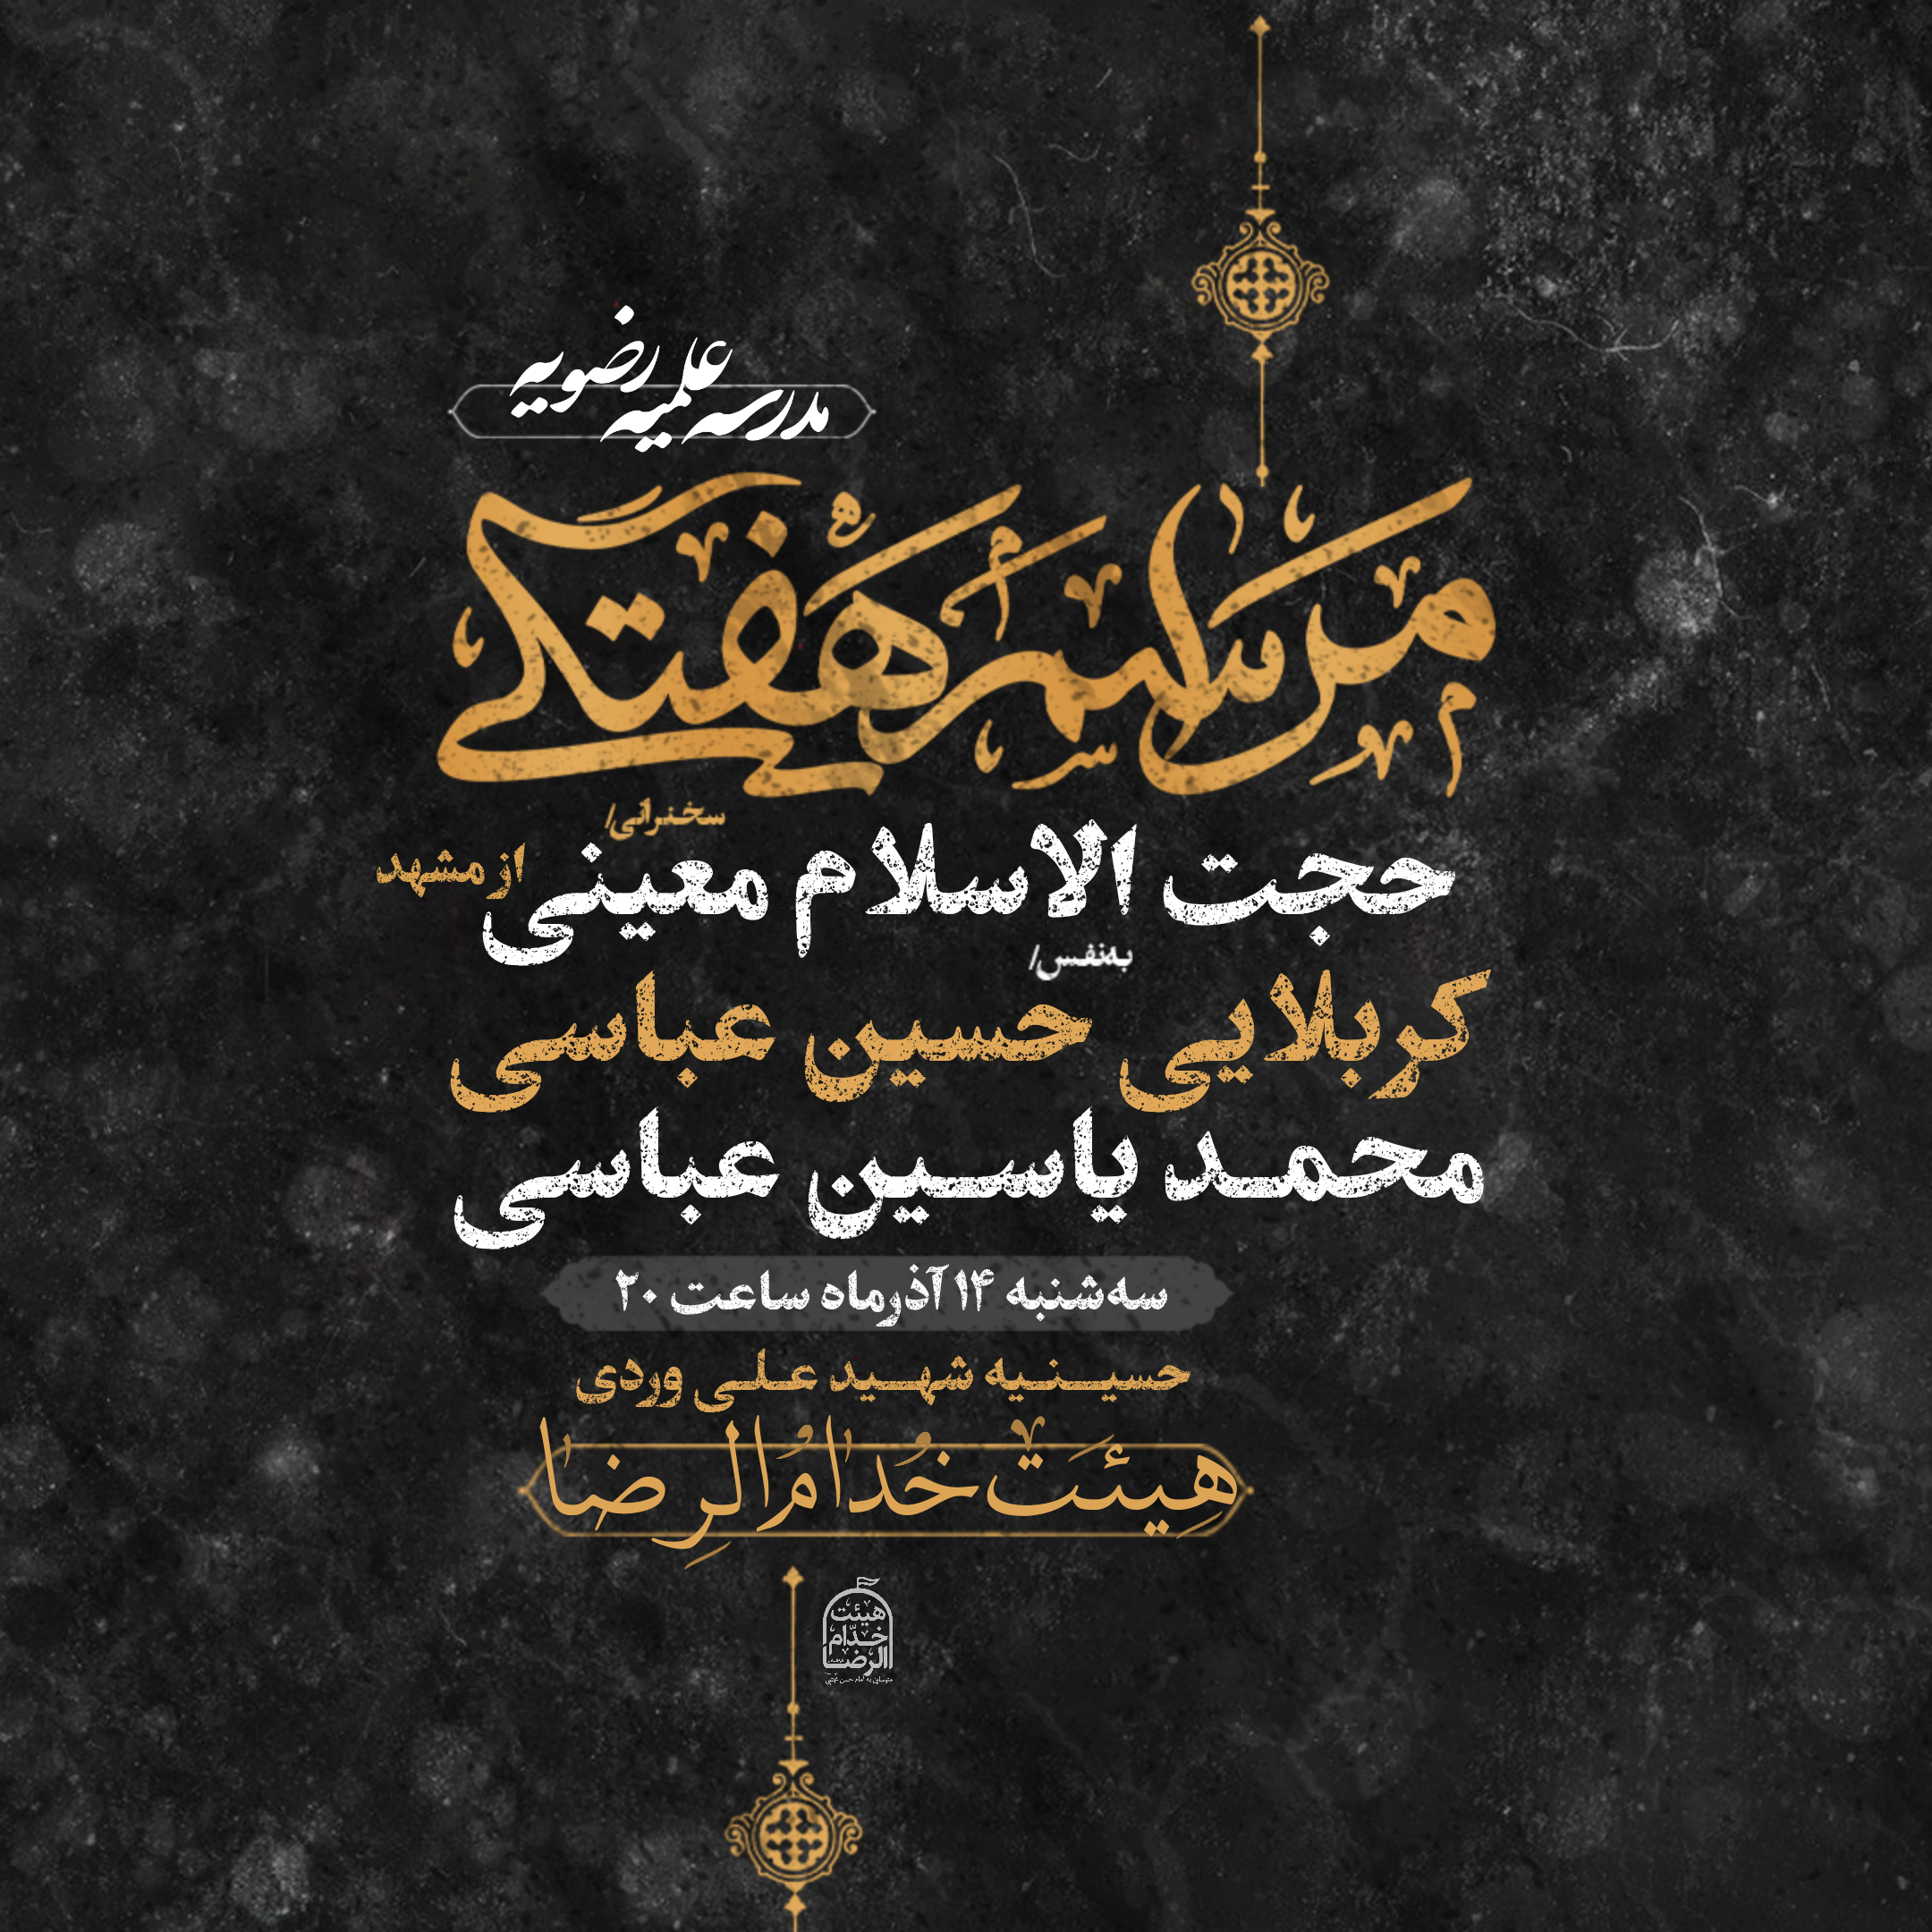 مدرسه علمیه رضویه
مراسم هفتگی
سخنرانی/
حجت الاسلام معینی از مشهد
به‌نفس/
کربلایی حسین عباسی
محمد یاسین عباسی
سه‌شنبه ۱۴ آذرماه ساعت ۲۰
حسینیه شهید علی وردی
هِیئَت خُدامُ الرِضا
هیئت
خدّام
الرضا
متوسلین به امام حسن مجتبی